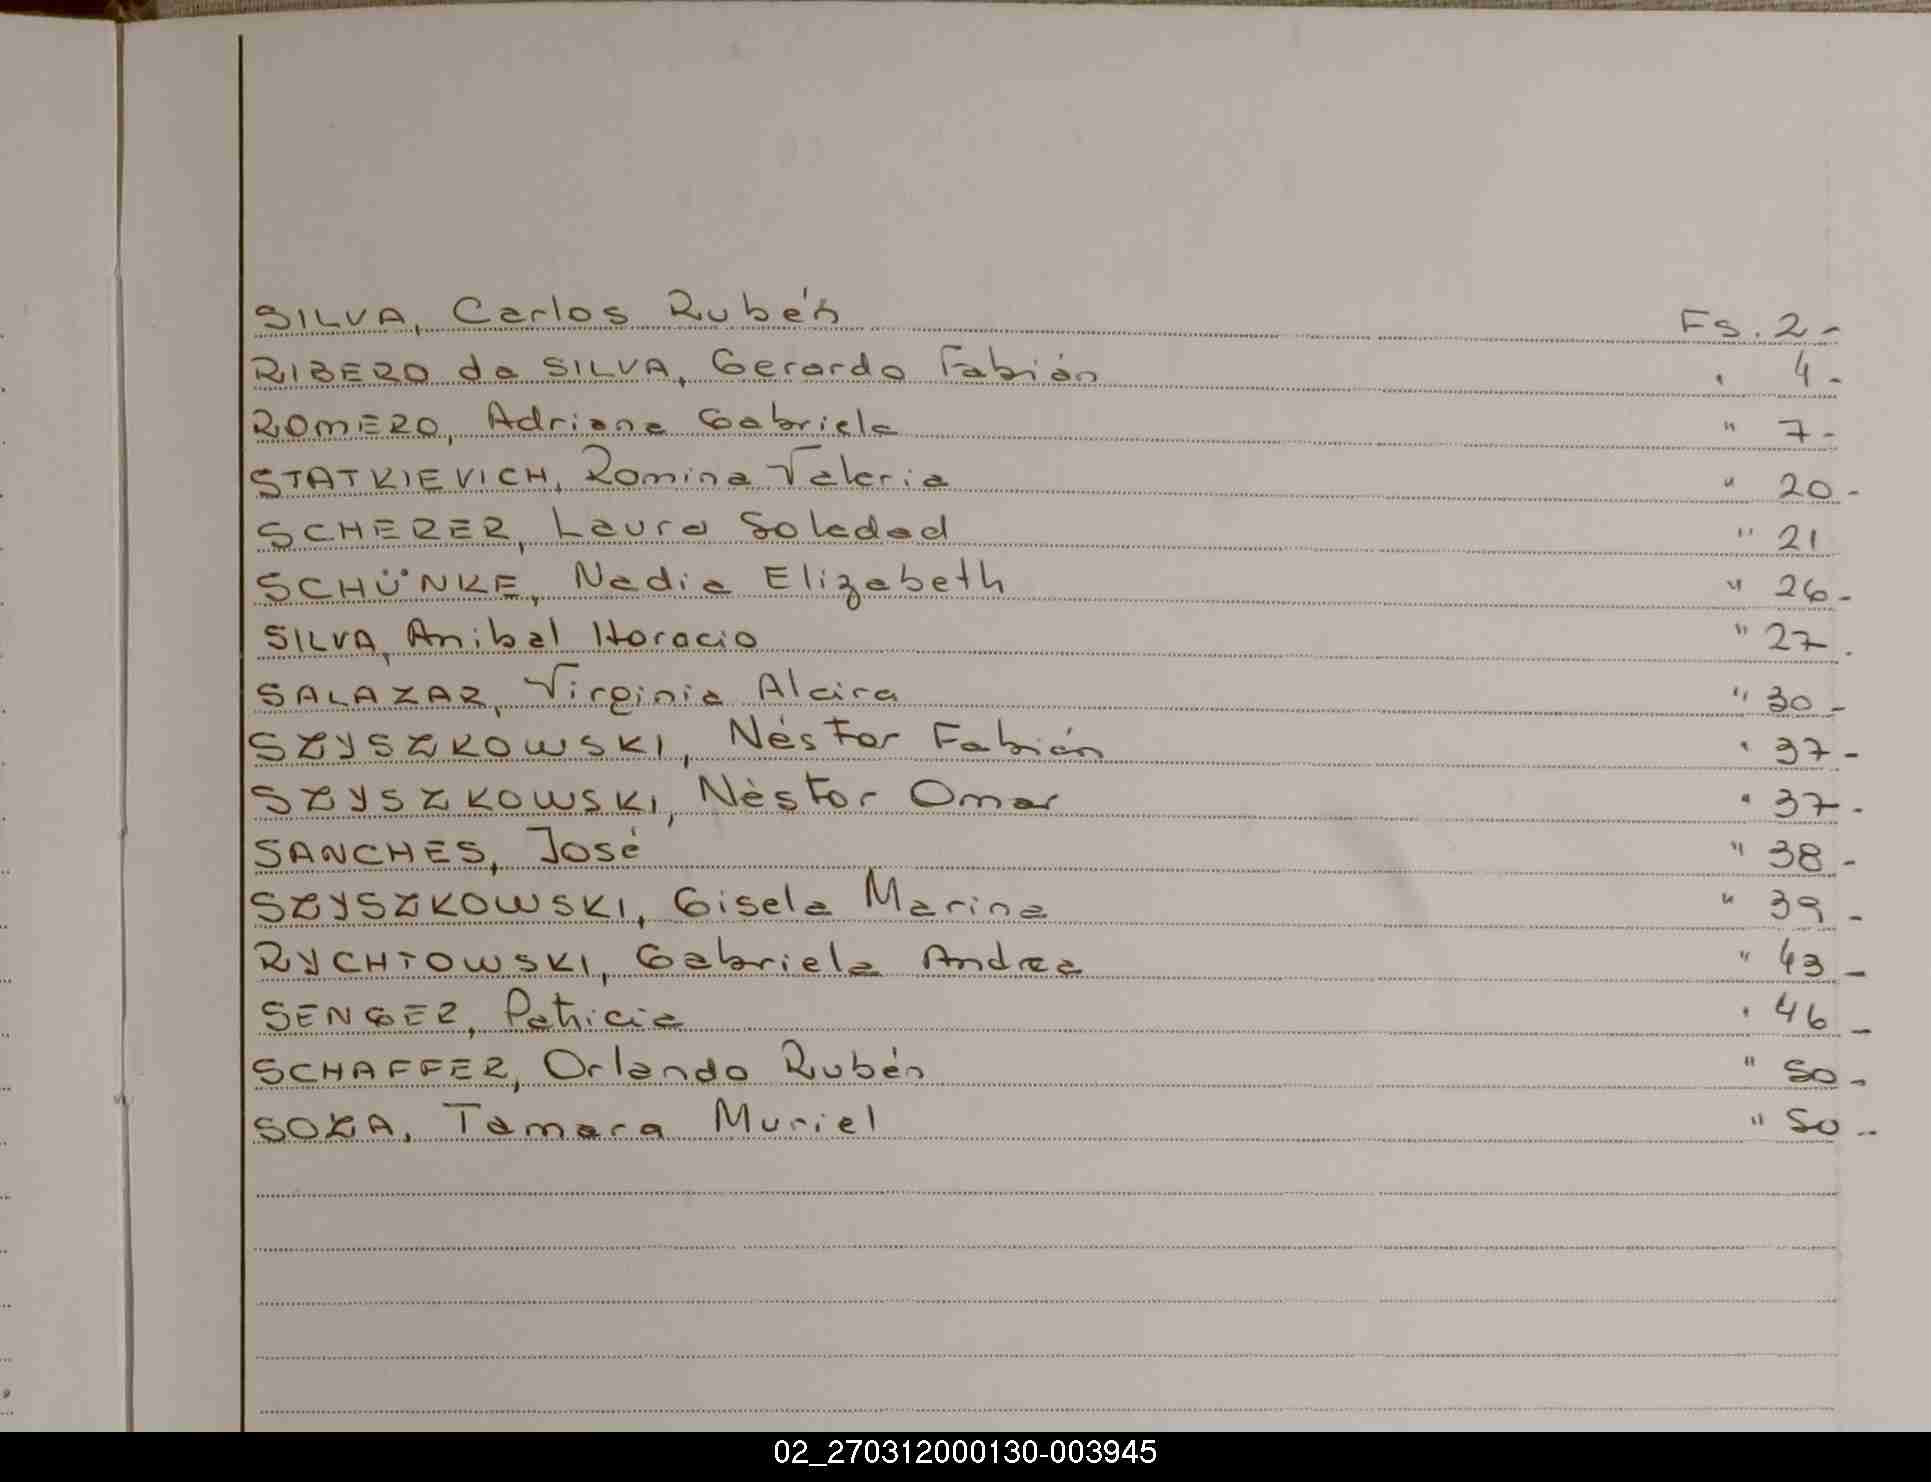 SILVA, Carlos Rubén Fs. 2-
RIBERO da SILVA, Gerardo Fabián " 4-
ROMERO, Adriana Gabriela " 7-
STATKIEVICH, Romina Valeria " 20-
SCHERER, Laura Soledad " 21
SCHÜNKE, Nadia Elizabeth " 26-
SILVA, Anibal Horacio " 27.
SALAZAR, Virginia Alcira " 30-
SZYSZKOWSKI, Néstor Fabián " 37-
SZYSZKOWSKI, Néstor Omar " 37-
SANCHES, José " 38-
SZYSZKOWSKI, Gisela Marina " 39-
RYCHTOWSKI, Gabriela Andrea " 43-
SENGER, Patricia " 46-
SCHAFFER, Orlando Rubén " 50-
SOZA, Tamara Muriel " 50-
02_270312000130-003945